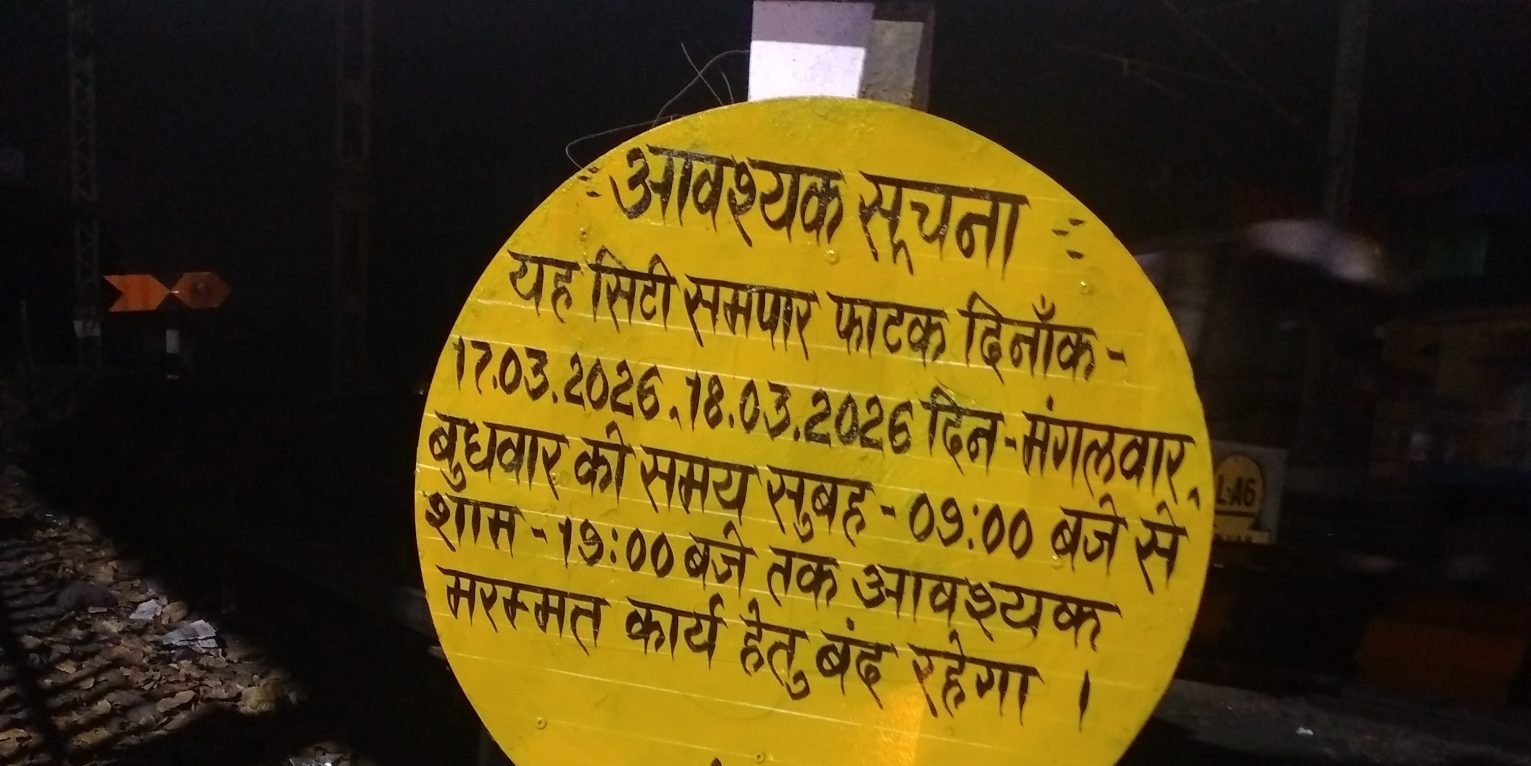 "आवश्यक सूचना"
यह सिटी समपार फाटक दिनाँक-
17.03.2026.18.03.2026 दिन-मंगलवार,
बुधवार को समय सुबह-09:00 बजे से
शाम-19:00 बजे तक आवश्यक
मरम्मत कार्य हेतु बंद रहेगा ।
L:A6